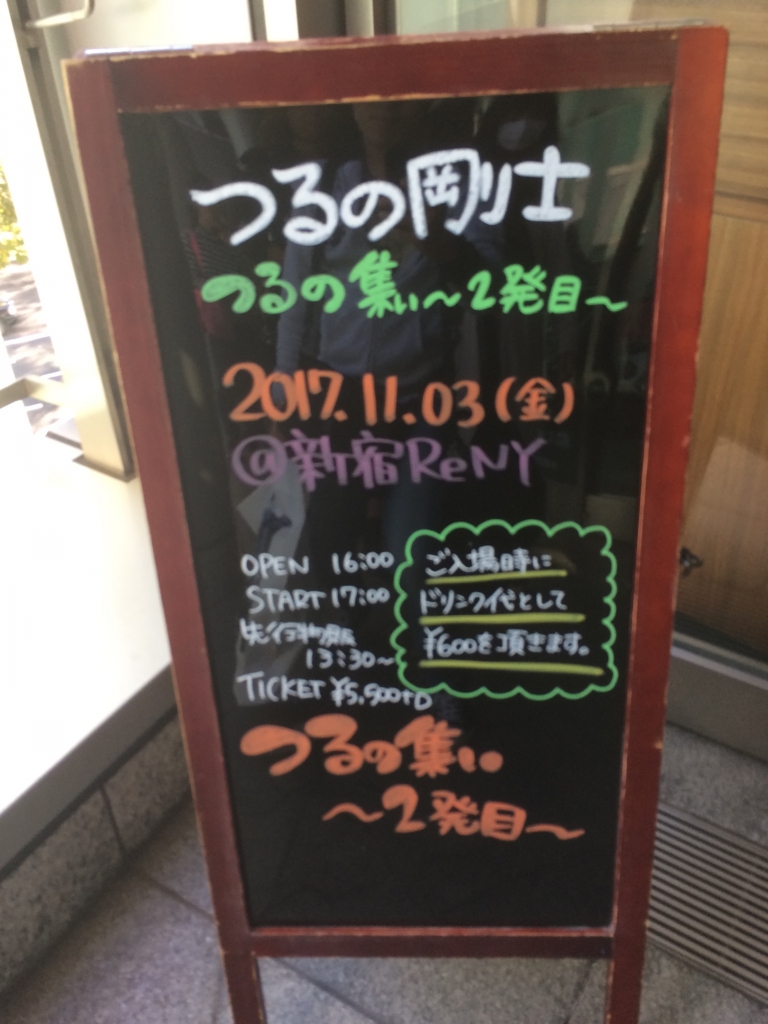 つるの剛士
つるの集い～2発目～
2017.11.03(金)
@新宿ReNY
OPEN 16:00
START 17:00
先行物販
13:30～
TICKET ¥5,500+D
ご入場時に
ドリンク代として
¥600を頂きます。
つるの集い
～2発目～